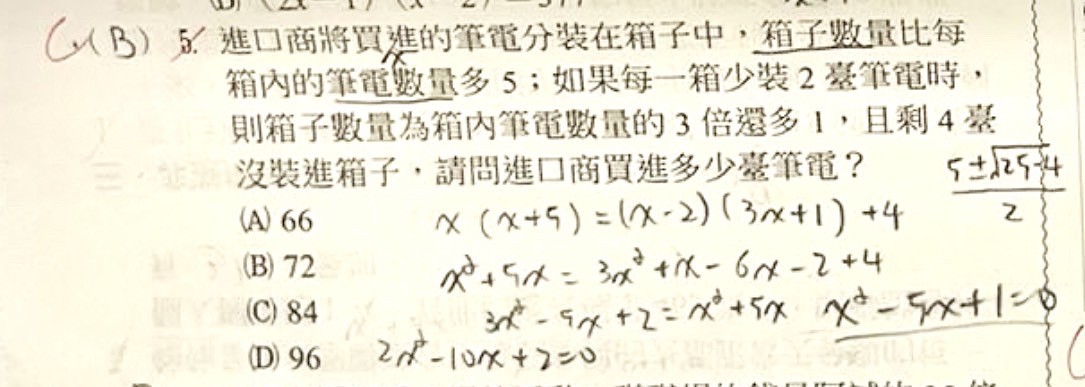 (B) 5. 進口商將買進的筆電分裝在箱子中，箱子數量比每
x
箱內的筆電數量多 5；如果每一箱少裝 2 臺筆電時，
則箱子數量為箱內筆電數量的 3 倍還多 1，且剩 4 臺
沒裝進箱子，請問進口商買進多少臺筆電？
5±√25-4
2
(A) 66
x(x+5)=(x-2)(3x+1)+4
(B) 72
x²+5x=3x²+1x-6x-2+4
(C) 84
3x²-5x+2=x²+5x
x²-5x+1=0
(D) 96
2x²-10x+2=0